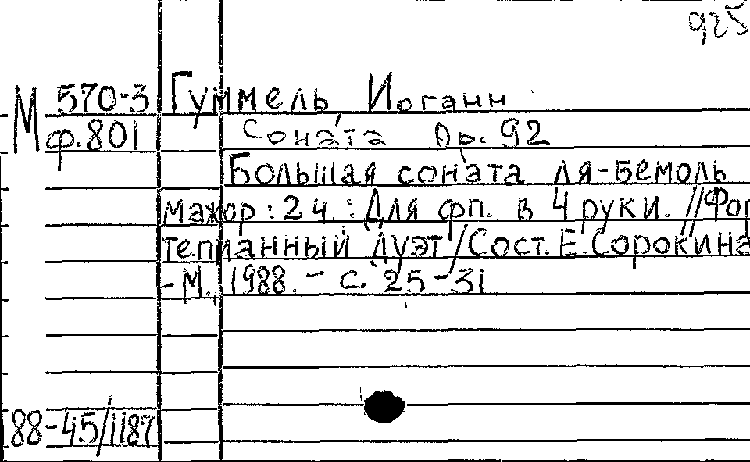 925
М 570-3 Гуммель, Иоганн
ф.801 Соната Op. 92
Большая соната ля-бемоль
мажор : 2 ч. : Для фп. в 4 руки. // Фор
тепианный дуэт / Сост. Е. Сорокина
- М., 1988. - С. 25-31
88-45/1187